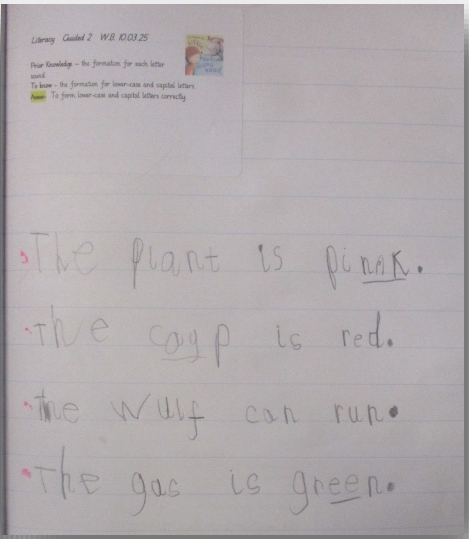 Literacy Guided 2 W.B. 10.03.25
Prior Knowledge – the formation for each letter
sound.
To know – the formation for lower-case and capital letters.
To form lower-case and capital letters correctly.
The plant is pinnk.
The cayp is red.
The wulf can run.
The gas is green.